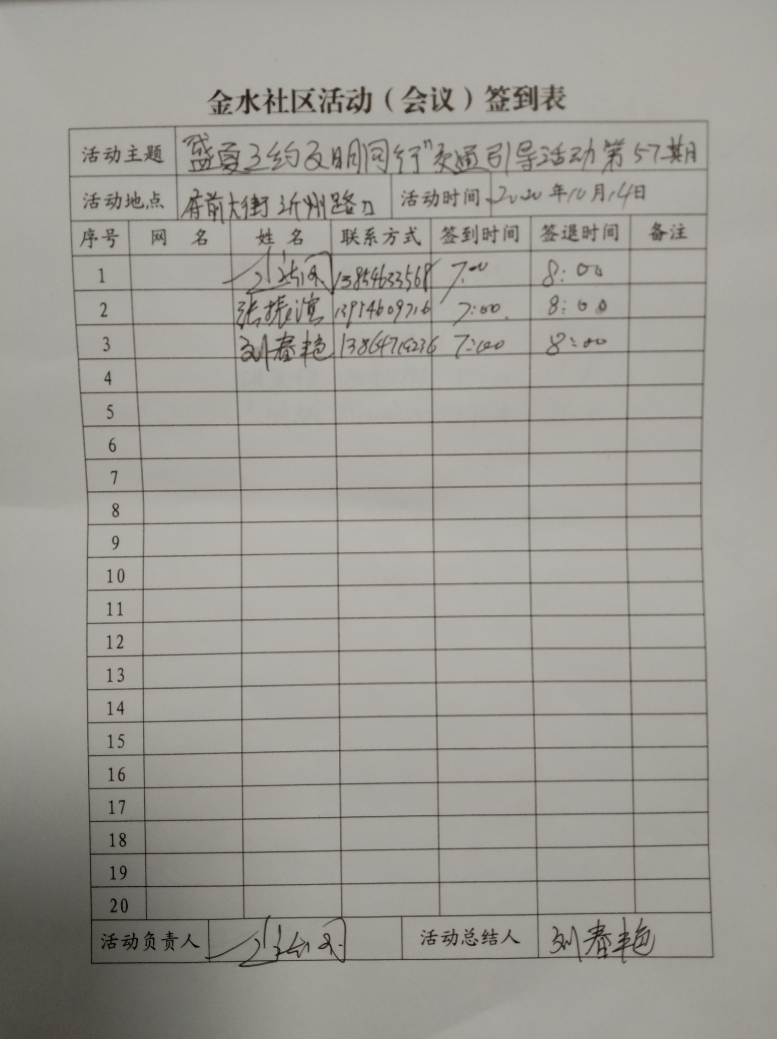 金水社区活动（会议）签到表
活动主题 盛夏之约文明同行"交通引导活动第57期
活动地点 府前大街沂州路口 活动时间 2020年10月14日
序号 网 名 姓 名 联系方式 签到时间 签退时间 备注
1 13854633568 7:00 8:00
2 张振滨 13954609716 7:00 8:00
3 刘春艳 13864714236 7:00 8:00
4
5
6
7
8
9
10
11
12
13
14
15
16
17
18
19
20
活动负责人 活动总结人 刘春艳